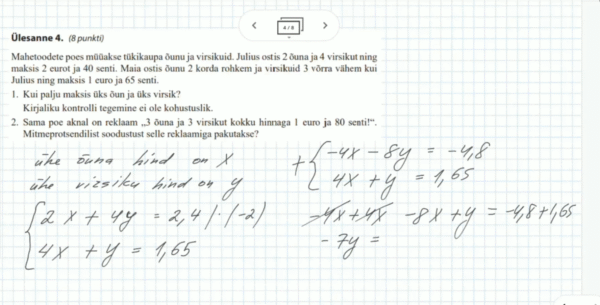 4 / 8
Ülesanne 4. (8 punkti)
Mahetoodete poes müüakse tükikaupa õunu ja virsikuid. Julius ostis 2 õuna ja 4 virsikut ning
maksis 2 eurot ja 40 senti. Maia ostis õunu 2 korda rohkem ja virsikuid 3 võrra vähem kui
Julius ning maksis 1 euro ja 65 senti.
1. Kui palju maksis üks õun ja üks virsik?
Kirjaliku kontrolli tegemine ei ole kohustuslik.
2. Sama poe aknal on reklaam „3 õuna ja 3 virsikut kokku hinnaga 1 euro ja 80 senti!“.
Mitmeprotsendilist soodustust selle reklaamiga pakutakse?
ühe õuna hind on x
ühe virsiku hind on y
2x + 4y = 2,4 | · (-2)
4x + y = 1,65
+ -4x - 8y = -4,8
4x + y = 1,65
-4x + 4x - 8y + y = -4,8 + 1,65
- 7y =